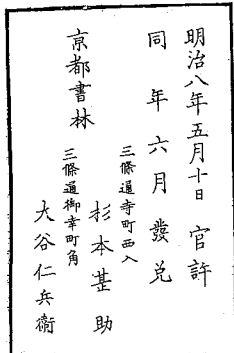 明治八年五月十日 官許
同年六月發兌
三條通寺町西入
杉本甚助
京都書林
三條通御幸町角
大谷仁兵衞